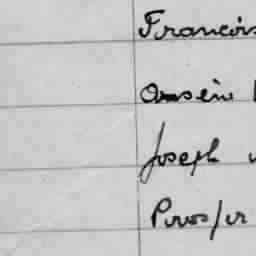 Francois
Arsène
Joseph
Prosper